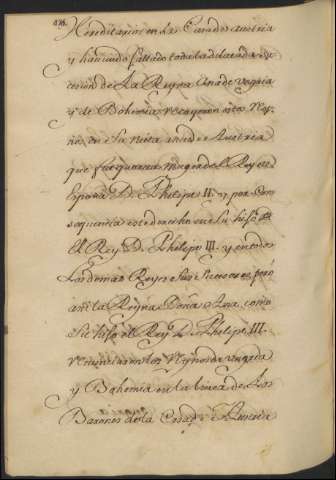 Hereditarios en la Casa de Austria
y haviendo faltado toda la dilatada su
cesion de La Reyna Ana de Vngria
y de Bohemia recayeron estos Rey
nos en su nieta Ana de Austria
que fue quarta muger del Rey de
España D. Phelipe II. y por Con
sequencia este derecho en su hijo
el Rey D. Phelipe III. y en todos
Los demas Reyes sus sucesores, pero
assi la Reyna Doña Ana, como
su hijo el Rey D. Phelipe III.
renunciaron los Reynos de Vngria
y Bohemia en la linea de los
Barones de la Casa de Austria